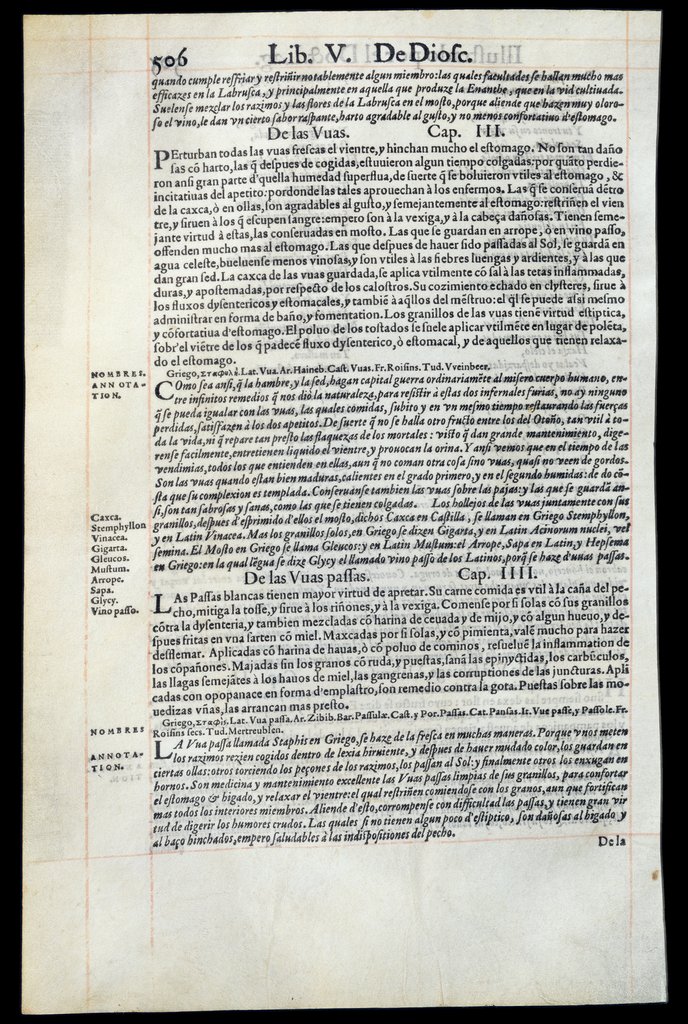 506 Lib. V. De Diosc.
quando cumple resfriar y restriñir notablemente algun miembro: las quales facultades se hallan mucho mas
efficazes en la Labrusca, y principalmente en aquella que produze la Enanthe, que en la vid cultiuada.
Suelense mezclar los razimos y las flores de la Labrusca en el mosto, porque aliende que hazen muy oloro-
so el vino, le dan vn cierto sabor raspante, harto agradable al gusto, y no menos confortatiuo d'estomago.
De las Vuas. Cap. III.
PErturban todas las vuas frescas el vientre, y hinchan mucho el estomago. No son tan daño
sas cõ harto, las q̃ despues de cogidas, estuuieron algun tiempo colgadas: por quãto perdie-
ron ansi gran parte d'quella humedad superflua, de suerte q̃ se boluieron vtiles al estomago, &
incitatiuas del apetito: por donde las tales aprouechan à los enfermos. Las q̃ se conseruã dẽtro
de la caxca, ò en ollas, son agradables al gusto, y semejantemente al estomago: restriñen el vien
tre, y siruen à los q̃ escupen sangre: empero son à la vexiga, y à la cabeça dañosas. Tienen seme-
jante virtud à estas, las conseruadas en mosto. Las que se guardan en arrope, ò en vino passo,
offenden mucho mas al estomago. Las que despues de hauer sido passadas al Sol, se guardã en
agua celeste, bueluense menos vinosas, y son vtiles à las fiebres luengas y ardientes, y à las que
dan gran sed. La caxca de las vuas guardada, se aplica vtilmente cõ sal à las tetas inflammadas,
duras, y apostemadas, por respecto de los calostros. Su cozimiento echado en clysteres, sirue à
los fluxos dysentericos y estomacales, y tambiẽ à aq̃llos del mẽstruo: el q̃l se puede assi mesmo
administrar en forma de baño, y fomentation. Los granillos de las vuas tienẽ virtud estiptica,
y cõfortatiua d'estomago. El poluo de los tostados se suele aplicar vtilmẽte en lugar de polẽta,
sobr'el viẽtre de los q̃ padecẽ fluxo dysenterico, ò estomacal, y de aquellos que tienen relaxa-
do el estomago.
NOMBRES. Griego, Σταφυλὴ. Lat. Vua. Ar. Haineb. Cast. Vuas. Fr. Roisins. Tud. Vveinbeer.
ANNOTA-
TION.
COmo sea ansi, q̃ la hambre, y la sed, hagan capital guerra ordinariamẽte al misero cuerpo humano, en-
tre infinitos remedios q̃ nos diò la naturaleza, para resistir à estas dos infernales furias, no ay ninguno
q̃ se pueda igualar con las vuas, las quales comidas, subito y en vn mesmo tiempo restaurando las fuerças
perdidas, satisfazen à los dos apetitos. De suerte q̃ no se halla otro fructo entre los del Otoño, tan vtil à to-
da la vida, ni q̃ repare tan presto las flaquezas de los mortales: visto q̃ dan grande mantenimiento, dige-
rense facilmente, entretienen liquido el vientre, y prouocan la orina. Y ansi vemos que en el tiempo de las
vendimias, todos los que entienden en ellas, aun q̃ no coman otra cosa sino vuas, quasi no veen de gordos.
Son las vuas quando estan bien maduras, calientes en el grado primero, y en el segundo humidas: de do cõ-
sta que su complexion es templada. Conseruanse tambien las vuas sobre las pajas: y las que se guardã an-
si, son tan sabrosas y sanas, como las que se tienen colgadas. Los hollejos de las vuas juntamente con sus
granillos, despues d'esprimido d'ellos el mosto, dichos Caxca en Castilla, se llaman en Griego Stemphyllon,
y en Latin Vinacea. Mas los granillos solos, en Griego se dizen Gigarta, y en Latin Acinorum nuclei, vel
semina. El Mosto en Griego se llama Gleucos: y en Latin Mustum: el Arrope, Sapa en Latin, y Hepsema
en Griego: en la qual lẽgua se dize Glycy el llamado vino passo de los Latinos, porq̃ se haze d'uuas passas.
Caxca.
Stemphyllon
Vinacea.
Gigarta.
Gleucos.
Mustum.
Arrope.
Sapa.
Glycy.
Vino passo.
De las Vuas passas. Cap. IIII.
LAs Passas blancas tienen mayor virtud de apretar. Su carne comida es vtil à la caña del pe-
cho, mitiga la tosse, y sirue à los riñones, y à la vexiga. Comense por si solas cõ sus granillos
cõtra la dysenteria, y tambien mezcladas cõ harina de ceuada y de mijo, y cõ algun hueuo, y de-
spues fritas en vna sarten cõ miel. Maxcadas por si solas, y cõ pimienta, valẽ mucho para hazer
desflemar. Aplicadas cõ harina de hauas, ò cõ poluo de cominos, resueluẽ la inflammation de
los cõpañones. Majadas sin los granos cõ ruda, y puestas, sanã las epinyctidas, los carbũculos,
las llagas semejãtes à los hauos de miel, las gangrenas, y las corruptiones de las juncturas. Aplì
cadas con opopanace en forma d'emplastro, son remedio contra la gota. Puestas sobre las mo-
uedizas vñas, las arrancan mas presto.
NOMBRES Griego, Σταφὶς. Lat. Vua passa. Ar. Zibib. Bar. Passulæ. Cast. y Por. Passas. Cat. Pansas. It. Vue passe, y Passole. Fr.
Roisins secs. Tud. Mertreublen.
ANNOTA-
TION.
LA Vua passa llamada Staphis en Griego, se haze de la fresca en muchas maneras. Porque vnos meten
los razimos rezien cogidos dentro de lexia hiruiente, y despues de hauer mudado color, los guardan en
ciertas ollas: otros torciendo los peçones de los razimos, los passan al Sol: y finalmente otros los enxugan en
hornos. Son medicina y mantenimiento excellente las Vuas passas limpias de sus granillos, para confortar
el estomago & higado, y relaxar el vientre: el qual restriñen comiendose con los granos, aun que fortifican
mas todos los interiores miembros. Aliende d'esto, corrompense con difficultad las passas, y tienen gran vir
tud de digerir los humores crudos. Las quales si no tienen algun poco d'estiptico, son dañosas al higado y
al baço hinchados, empero saludables à las indispositiones del pecho.
De la